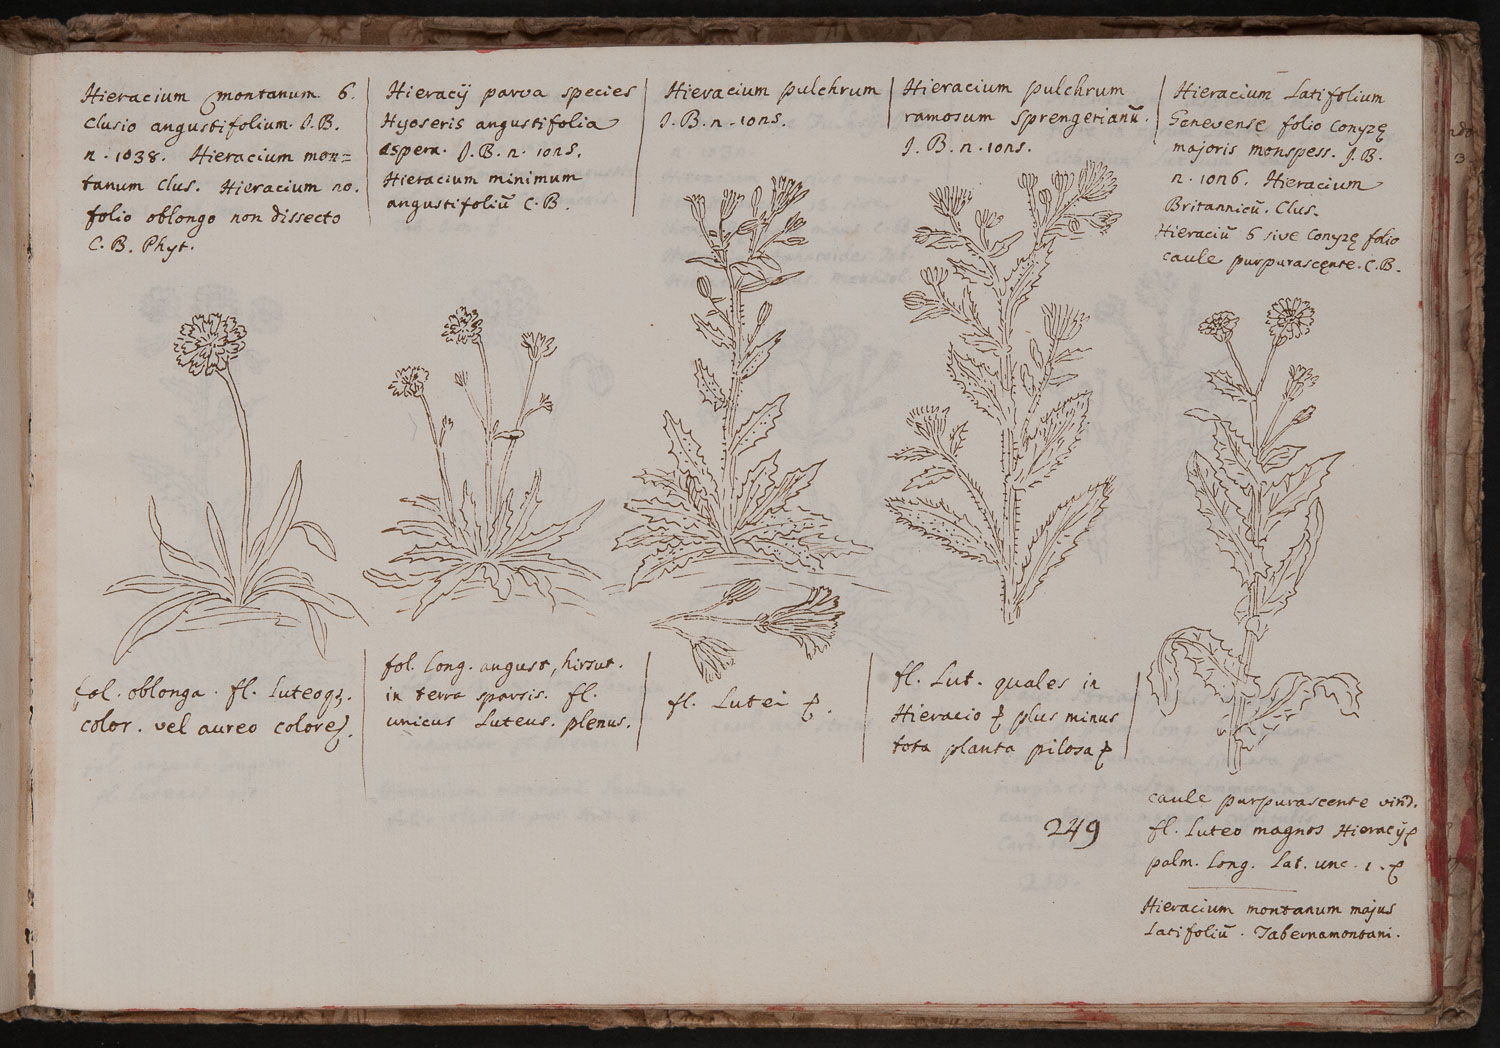 Hieracium montanum 6.
Clusio angustifolium. J.B.
n. 1038. Hieracium mon=
tanum Clus. Hieracium no.
folio oblongo non dissecto
C.B. Phyt.
fol. oblonga. fl. Luteoq3.
color. vel aureo colore
Hieracij parva species
Hyoseris angustifolia
aspera. J.B. n. 1015.
Hieracium minimum
angustifoliū C.B.
fol. Long. august, hirsut.
in terra sparsis. fl.
unicus Luteus. plenus.
Hieracium pulchrum
J.B. n. 1015.
fl. Lutei
Hieracium pulchrum
ramosum Sprengerianū.
J.B. n. 1015.
fl. Lut. quales in
Hieracio plus minus
tota planta pilosa
249
Hieracium Latifolium
Genevense folio Conyzę
majoris monspess. J.B.
n. 1026. Hieracium
Britannicū. Clus.
Hieraciū 6 sive Conyzę folio
caule purpurascente. C.B.
caule purpurascente virid.
fl. Luteo magnos Hieracij
palm. Long. Lat. unc. 1.
Hieracium montanum majus
Latifoliū. Tabernamontani.